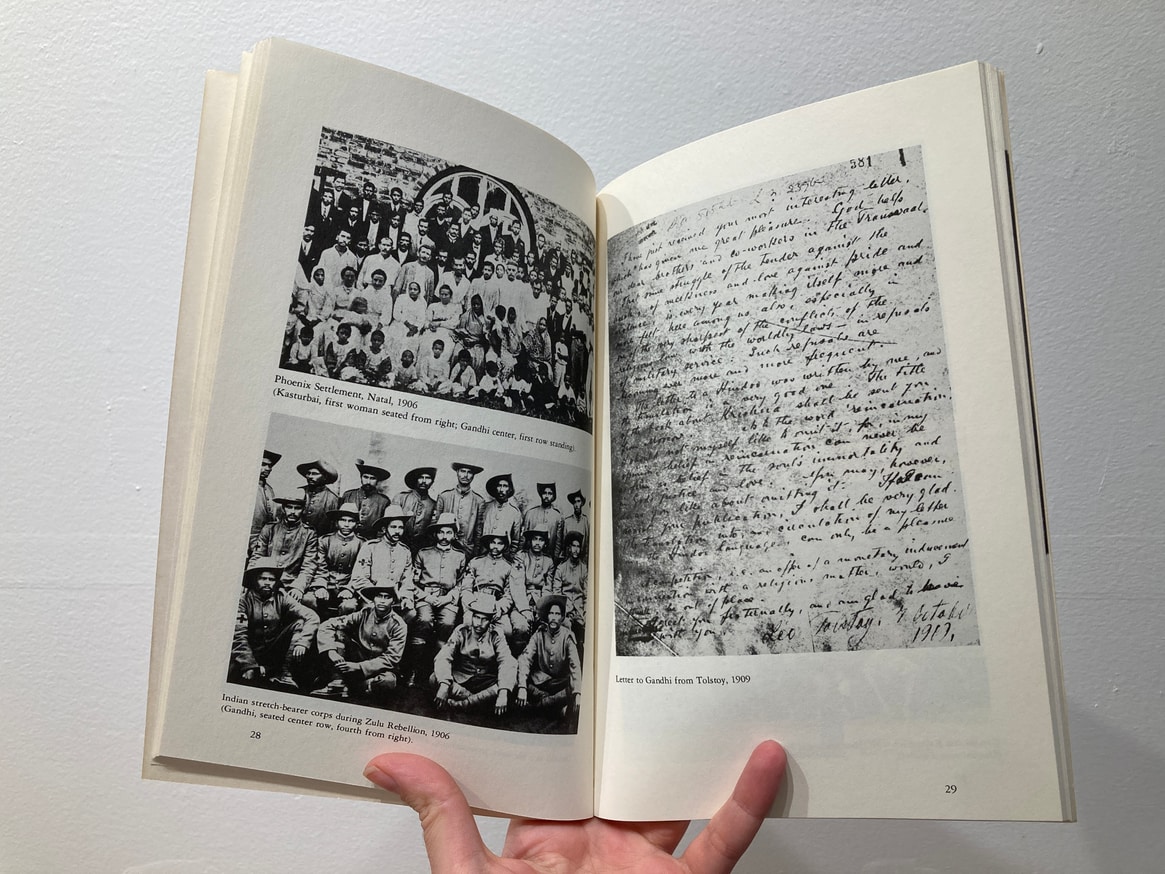 Phoenix Settlement, Natal, 1906
(Kasturbai, first woman seated from right; Gandhi center, first row standing).
Indian stretch-bearer corps during Zulu Rebellion, 1906
(Gandhi, seated center row, fourth from right).
28
381
just received your most interesting letter,
which has given me great pleasure. God help
our brothers and co-workers in the Transvaal.
struggle of the tender against the
of meekness and love against pride and
is every year making itself more and
felt here among us also, especially in
sharpest of the conflicts of the
with the worldly laws in refusals
military service. Such refusals are
ever more and more frequent.
letter to a Hindoo was written by me, and
translation a very good one. The title
book about Krishna shall be sent you
the word reincarnation.
not myself like to omit it, for, in my
belief in reincarnation can never be
belief in the soul's immortality and
justice and love. You may, however,
like about omitting it.
your publication, I shall be very glad.
translation into, and circulation of my letter
Hindoo language, can only be a pleasure
competition, i.e. an offer of a monetary inducement
with a religious matter, would, I
out of place.
greet you fraternally, and am glad to have
with you. Leo Tolstoy. 7 October
Letter to Gandhi from Tolstoy, 1909
29